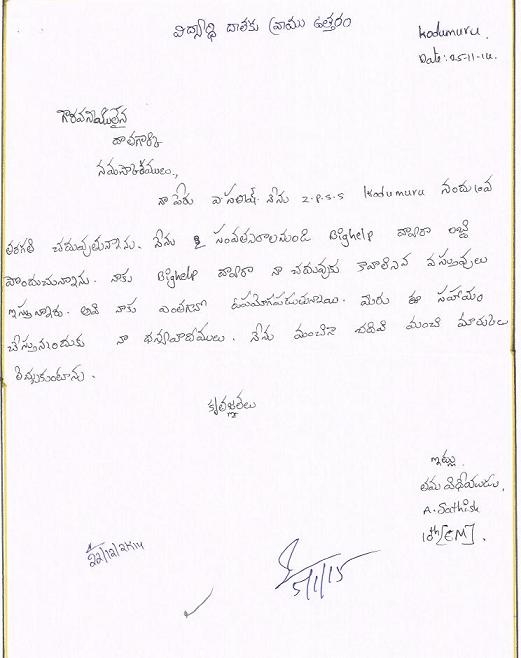 విద్యార్థి దాతకు వ్రాయు ఉత్తరం
Kodumuru.
Date: 25-11-14.
గౌరవనీయులైన
దాతగారికి
నమస్కారములు.,
నా పేరు ఎ.సతీష్. నేను Z.P.S.S Kodumuru నందు 10వ
తరగతి చదువుతున్నాను. నేను 2 సంవత్సరాలనుండి Bighelp ద్వారా లబ్ది
పొందుచున్నాను. నాకు Bighelp ద్వారా నా చదువుకు కావాలసిన వస్తువులు
ఇస్తున్నారు. అవి నాకు ఎంతగానో ఉపయోగపడుతున్నాయి. మీరు ఈ సహాయం
చేస్తున్నందుకు నా ధన్యవాదములు. నేను మంచిగా చదివి మంచి మార్కులు
తెచ్చుకుంటాను.
కృతజ్ఞతలు
ఇట్లు
తమ విధేయుడు,
A. Sathish
10th [EM].
22/12/2K14
5/1/15